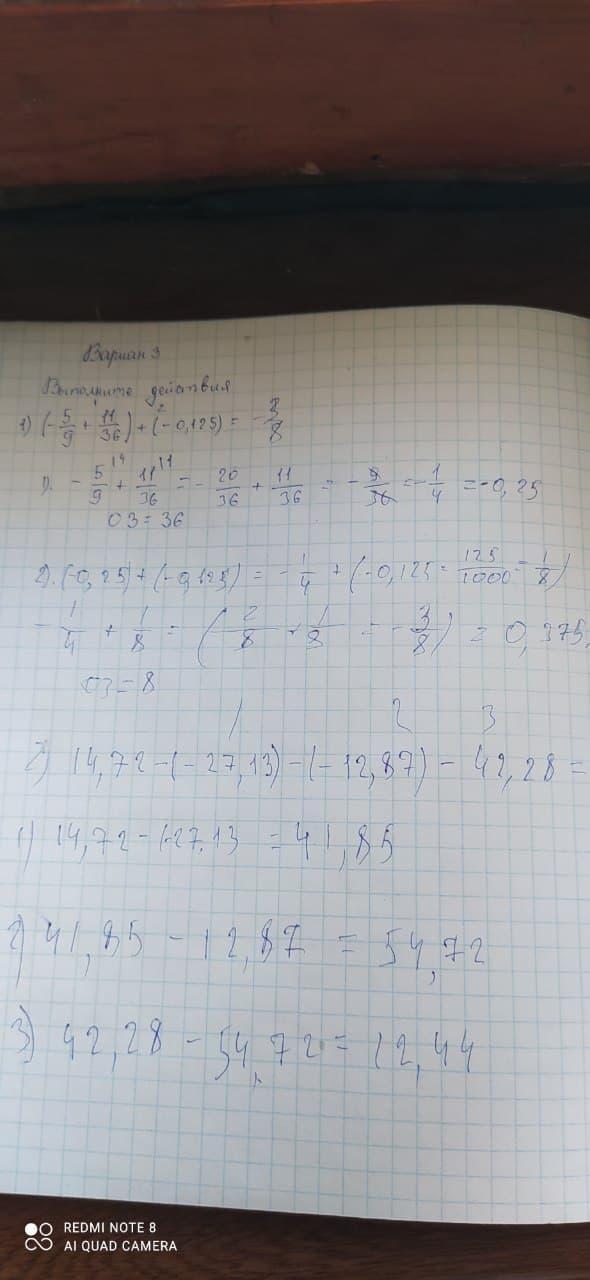 Вариан 3
Выполните действия
1) (-5/9 + 11/36) + (-0,125) = -3/8
1). -5/9 + 11/36 = -20/36 + 11/36 = -9/36 = -1/4 = -0,25
ОЗ = 36
2). (-0,25) + (-0,125) = -1/4 + (-0,125 = 125/1000 = 1/8)
-1/4 + 1/8 = (2/8 + 1/8 = -3/8) = 0,375
ОЗ = 8
1 2 3
2) 14,72 - (-27,13) - (-12,87) - 42,28 =
1) 14,72 - (-27,13 = 41,85
2) 41,85 - 12,87 = 54,72
3) 42,28 - 54,72 = 12,44
REDMI NOTE 8
AI QUAD CAMERA